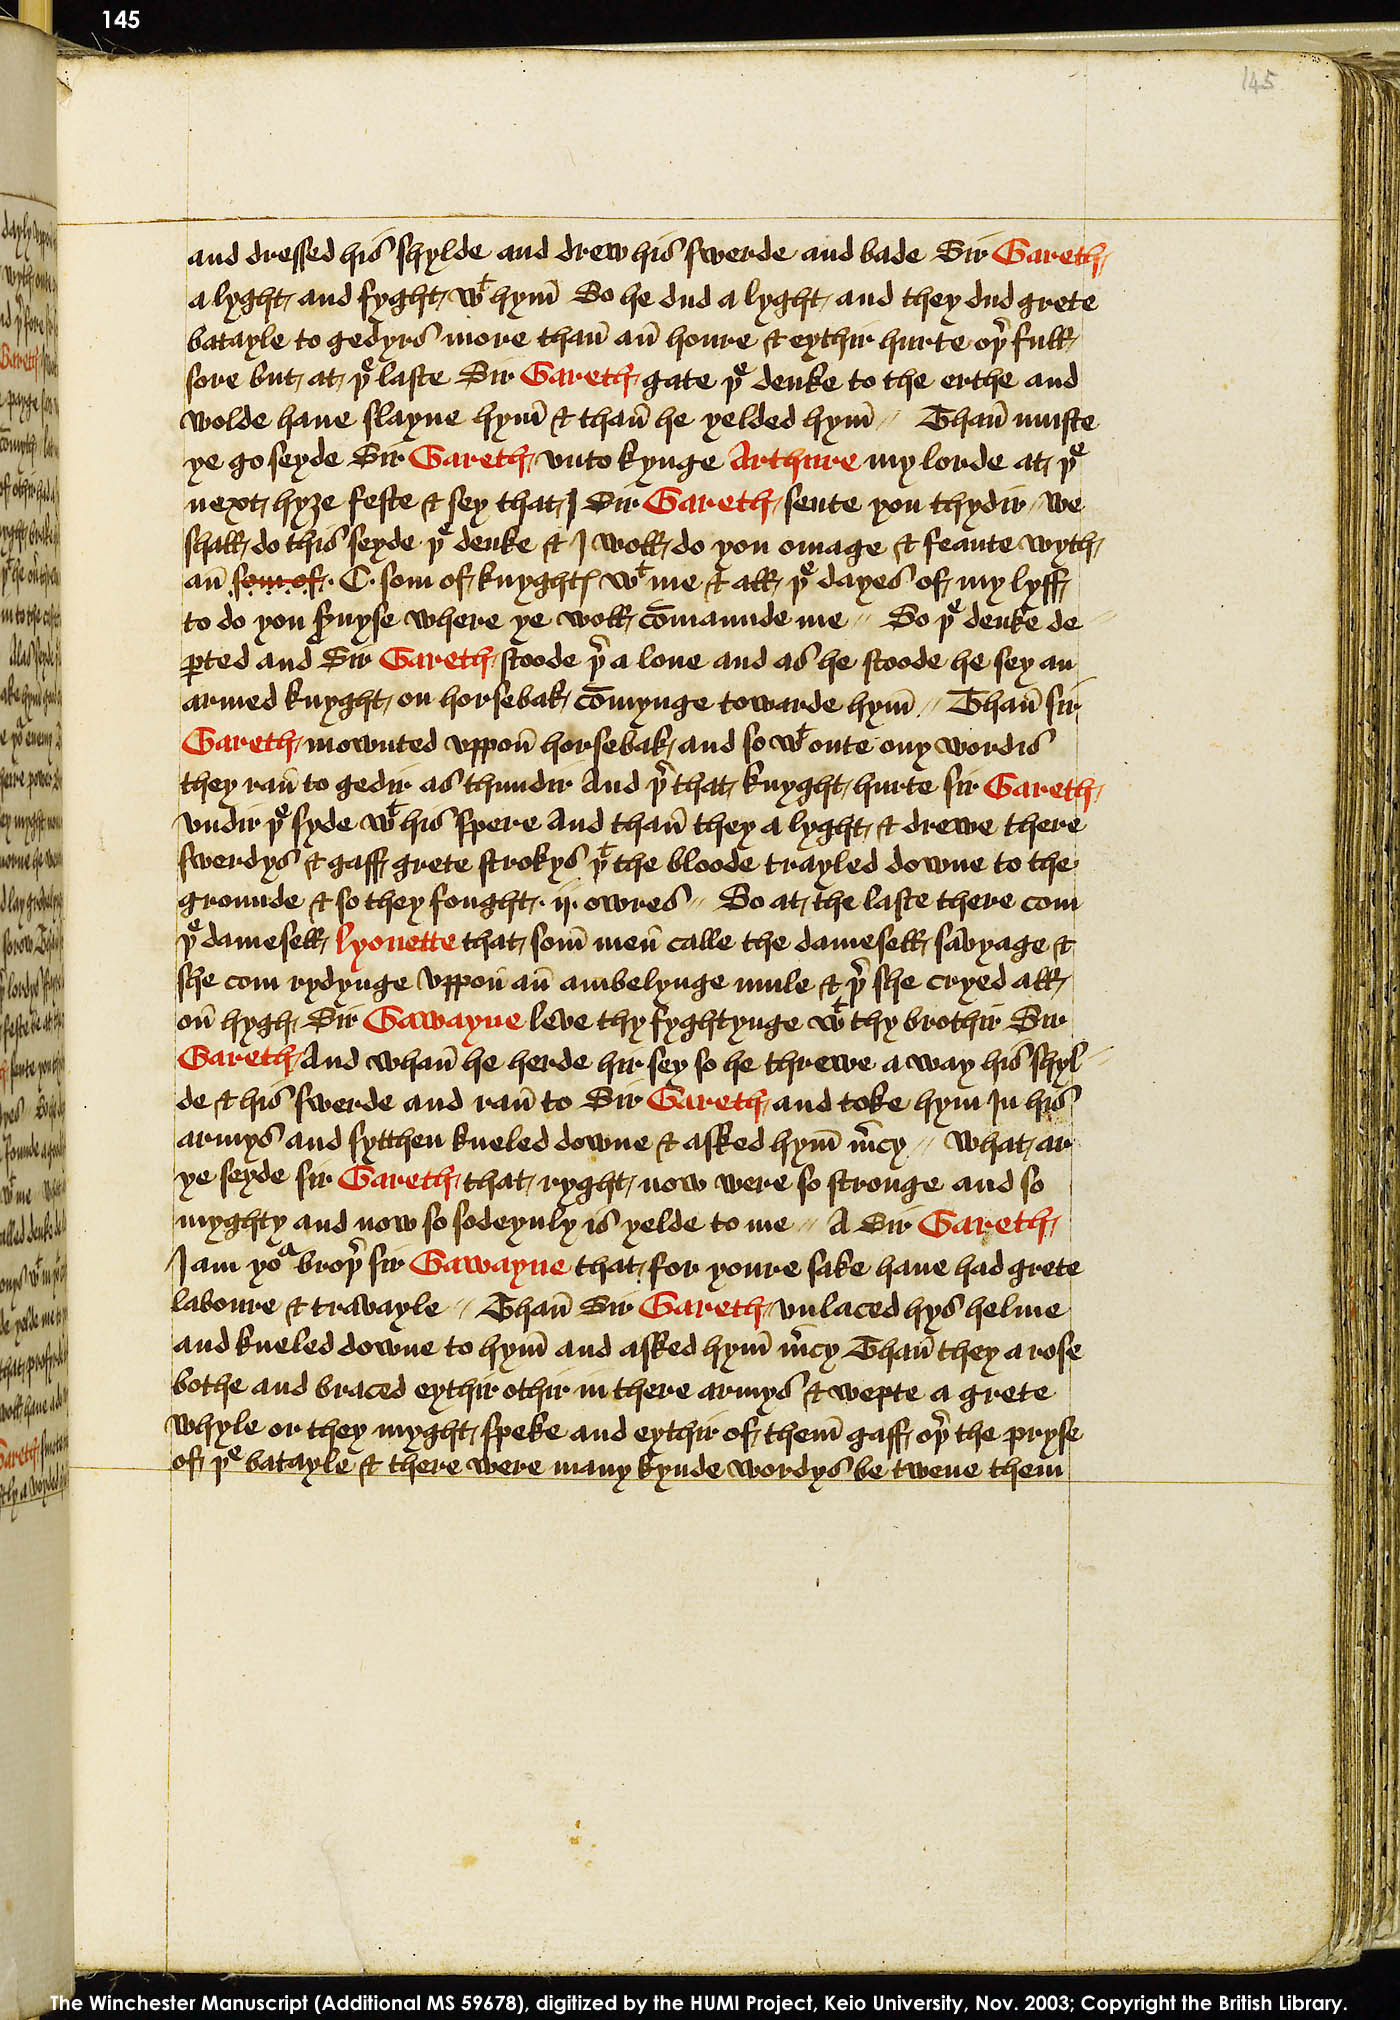 145
145
and dressed his shylde and drew his swerde and bade Sir Gareth
a lyght and fyght wᵗ hym̄ So he dud a lyght and they dud grete
batayle to gedyrs more than̄ an̄ houre & eythir hurte oþʳ full
sore but at þᵉ laste Sir Gareth gate þᵉ deuke to the erthe and
wolde haue slayne hym̄ & than̄ he yelded hym̄ // Than̄ muste
ye go seyde Sir Gareth vnto kynge Arthure my lorde at þᵉ
next hyȝe feste & sey that I Sir Gareth sente you thydir // We
shall do this seyde þᵉ deuke & I woll do you omage & feaute wyth
an̄ som of · C · som of knyghtes wᵗ me & all þᵉ dayes of my lyff
to do you seruyse where ye woll cōmaunde me // So þᵉ deuke de
ꝑted and Sir Gareth stoode þʳ a lone and as he stoode he sey an
armed knyght on horsebak cōmynge towarde hym̄ // Than̄ sir
Gareth mownted vppon̄ horsebak and so wᵗ oute ony wordis
they ran̄ to gedir as thundir And þʳ that knyght hurte sir Gareth
vndir þᵉ syde wᵗ his spere And than̄ they a lyght & drewe there
swerdys & gaff grete strokys þᵗ the bloode trayled downe to the
grounde & so they fought · ij · owres // So at the laste there com
þᵉ damesell lyonette that som̄ men̄ calle the damesell savyage &
she com rydynge vppon̄ an̄ ambelynge mule & þʳ she cryed all
on̄ hygh Sir Gawayne leve thy fyghtynge wᵗ thy brothir Sir
Gareth And whan̄ he herde hir sey so he threwe a way his shyl
de & his swerde and ran̄ to Sir Gareth and toke hym In his
armys and sytthen kneled downe & asked hym̄ m̄cy // What ar
ye seyde sir Gareth that ryght now were so stronge and so
myghty and now so sodeynly is yelde to me // A Sir Gareth
I am yoᵃ broþʳ sir Gawayne that for youre sake haue had grete
laboure & travayle // Than̄ Sir Gareth vnlaced hys helme
and kneled downe to hym̄ and asked hym̄ m̄cy Than̄ they a rose
bothe and braced eythir othir in there armys & wepte a grete
whyle or they myght speke and eythir of them̄ gaff oþʳ the pryse
of þᵉ batayle & there were many kynde wordys be twene them
The Winchester Manuscript (Additional MS 59678), digitized by the HUMI Project, Keio University, Nov. 2003; Copyright the British Library.